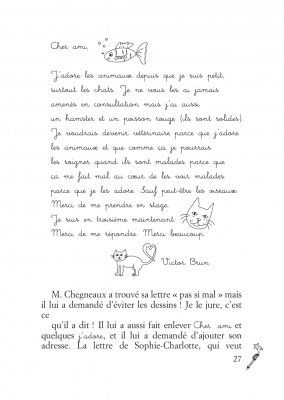 Cher ami,
J'adore les animaux depuis que je suis petit,
surtout les chats. Je ne vous les ai jamais
amenés en consultation mais j'ai aussi
un hamster et un poisson rouge (ils sont solides).
Je voudrais devenir vétérinaire parce que j'adore
les animaux et que comme ça je pourrais
les soigner quand ils sont malades parce que
ça me fait mal au cœur de les voir malades
parce que je les adore. Sauf peut-être les oiseaux.
Merci de me prendre en stage.
Je suis en troisième maintenant.
Merci de me répondre. Merci beaucoup.
Victor Brun
M. Chegneaux a trouvé sa lettre « pas si mal » mais
il lui a demandé d'éviter les dessins ! Je le jure, c'est
ce
qu'il a dit ! Il lui a aussi fait enlever Cher ami et
quelques j'adore, et il lui a demandé d'ajouter son
adresse. La lettre de Sophie-Charlotte, qui veut
27